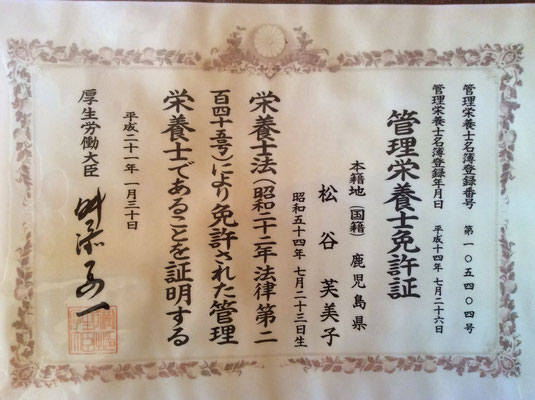 管理栄養士名簿登録番号 第一〇五四〇四号
管理栄養士名簿登録年月日 平成十四年 七月二十六日
管理栄養士免許証
本籍地(国籍) 鹿児島県
松谷 芙美子
昭和五十四年 七月二十三日生
栄養士法(昭和二十二年法律第二
百四十五号)により免許された管理
栄養士であることを証明する
平成二十一年 一月三十日
厚生労働大臣 舛添要一